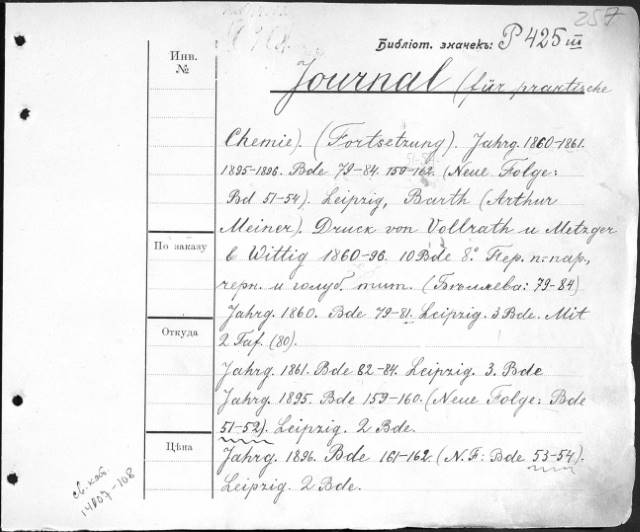 257
Библіот. значекъ: P 425 III
Инв.
№
Journal (für praktische
Chemie). (Fortsetzung). Jahrg. 1860-1861.
1895-1896. Bde 79-84. 159-162. (Neue Folge:
Bd 51-54). Leipzig, Barth (Arthur
Meiner). Druck von Vollrath u Metzger
Wittig 1860-96. 10 Bde 8.° Пер. п: пар.,
По заказу
черн. и голуб. тит. (79-84)
Jahrg. 1860. Bde 79-81. Leipzig. 3 Bde. Mit
Откуда
2 Taf. (80).
Jahrg. 1861. Bde 82-84. Leipzig. 3. Bde
Jahrg. 1895. Bde 159-160. (Neue Folge: Bde
51-52). Leipzig. 2 Bde.
Цѣна
Jahrg. 1896. Bde 161-162. (N. F: Bde 53-54).
Leipzig. 2 Bde.
св. кат
14107-108